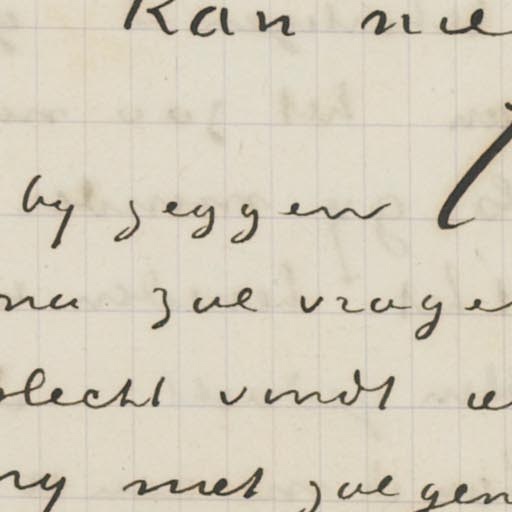 Kan nie
by zeggen
na zal vrage
slecht vindt e
ny met zoe gen